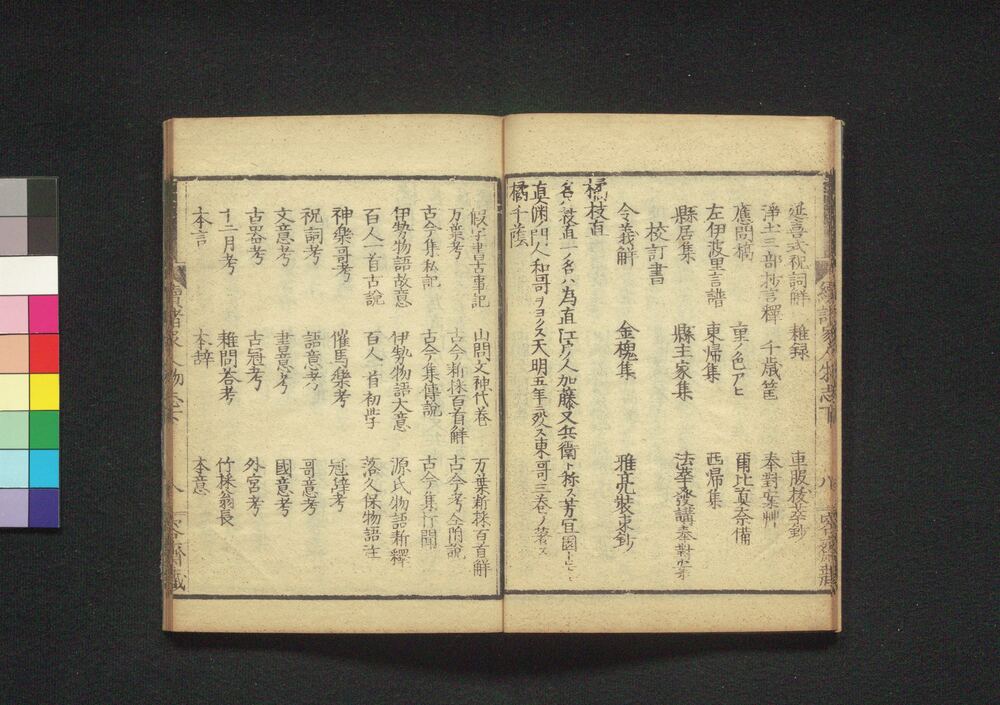 延喜式祝詞解 雜録 車服桉萃鈔
淨土三部抄言釋 千歳筐 奉對案艸
應問稿 東ノ色アヒ 爾比夏奈備
左伊波里言譜 東歸集 西帰集
縣居集 縣主家集 法華發講奉對案
校訂書
令義解 金槐集 雅亮裝束鈔
橘枝直
名ハ枝直一ノ名ハ為直江戸ノ人加藤又兵衛ト称ス芳宜園ト
真渊ノ門人和哥ヲヨクス天明五年ニ死ス東哥三巻ノ著ス
橘千蔭
假字書古事記 山問文神代卷 万葉新採百首解
万葉考 古今新採百首解 古今考金附說
古今集私記 古今集傳說 古今集打聞
伊勢物語故意 伊勢物語大意 源氏物語新釋
百人一首古說 百人一首初學 落久保物語註
神樂哥考 催馬樂考 冠辞考
祝詞考 語意考 哥意考
文意考 書意考 國意考
古器考 古冠考 外宮考
十二月考 雜問答考 竹採翁長
本言 本辞 本意
續諸家人物志下 八